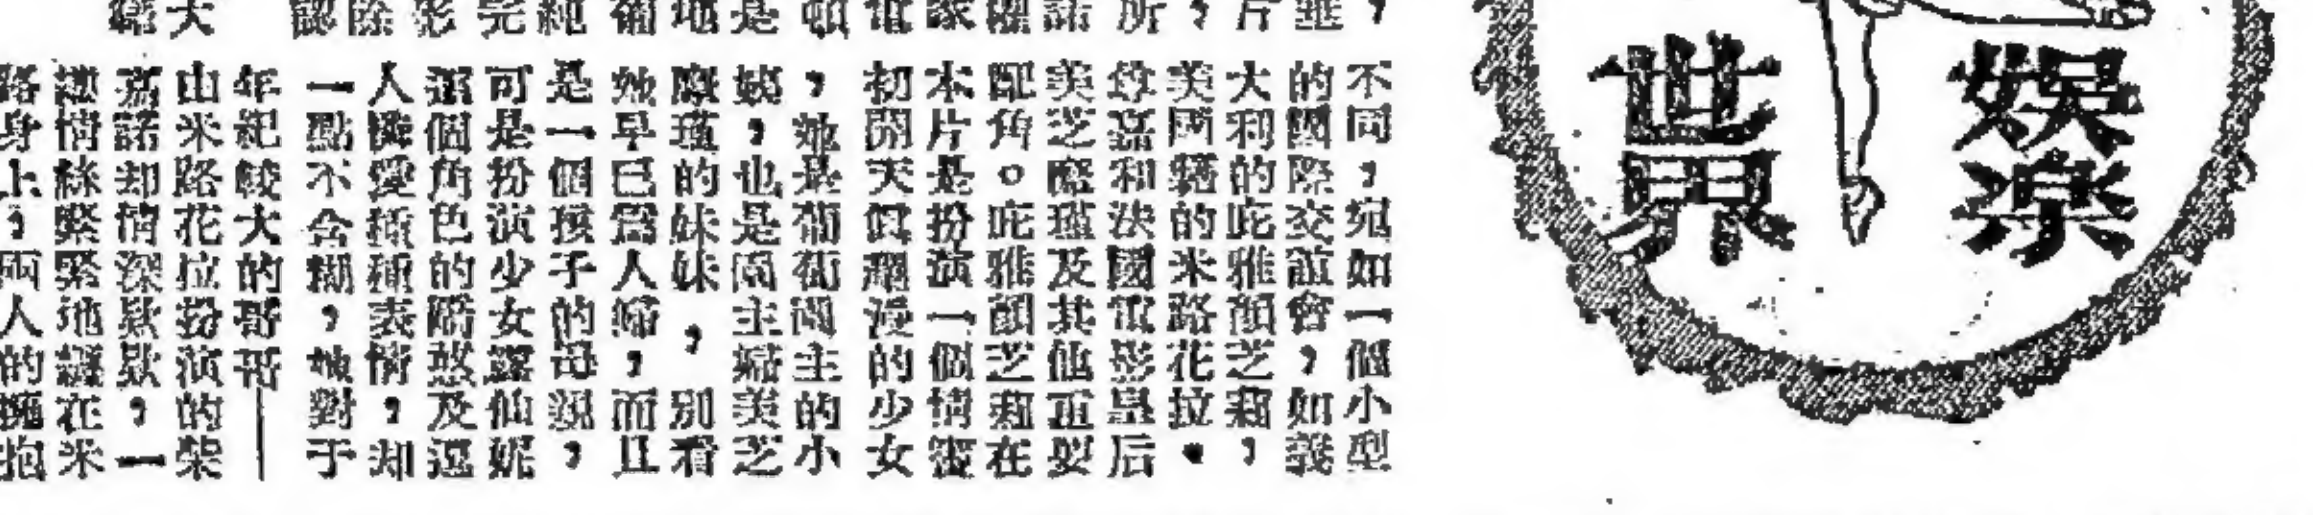 娛楽
世界
不同，宛如一個小型
的國際交誼會，如義
大利的庇雅顏芝莉，
美國籍的米路花拉・
尊嘉和法國電影皇后
美芝摩瑾及其他重要
配角。庇雅顏芝莉在
本片是扮演一個情竇
初開天眞爛漫的少女
，她是葡萄園主的小
姨，也是園主婦美芝
摩瑾的妹妹，別看
她早已爲人婦，而且
是一個孩子的母親，
可是扮演少女露仙妮
這個角色的嬌憨及逗
人憐愛種種表情，却
一點不含糊，她對于
年紀較大的哥哥——
由米路花拉扮演的柴
嘉諾却情深欵欵，一
縷情絲緊緊地纏在米
路身上，兩人的擁抱